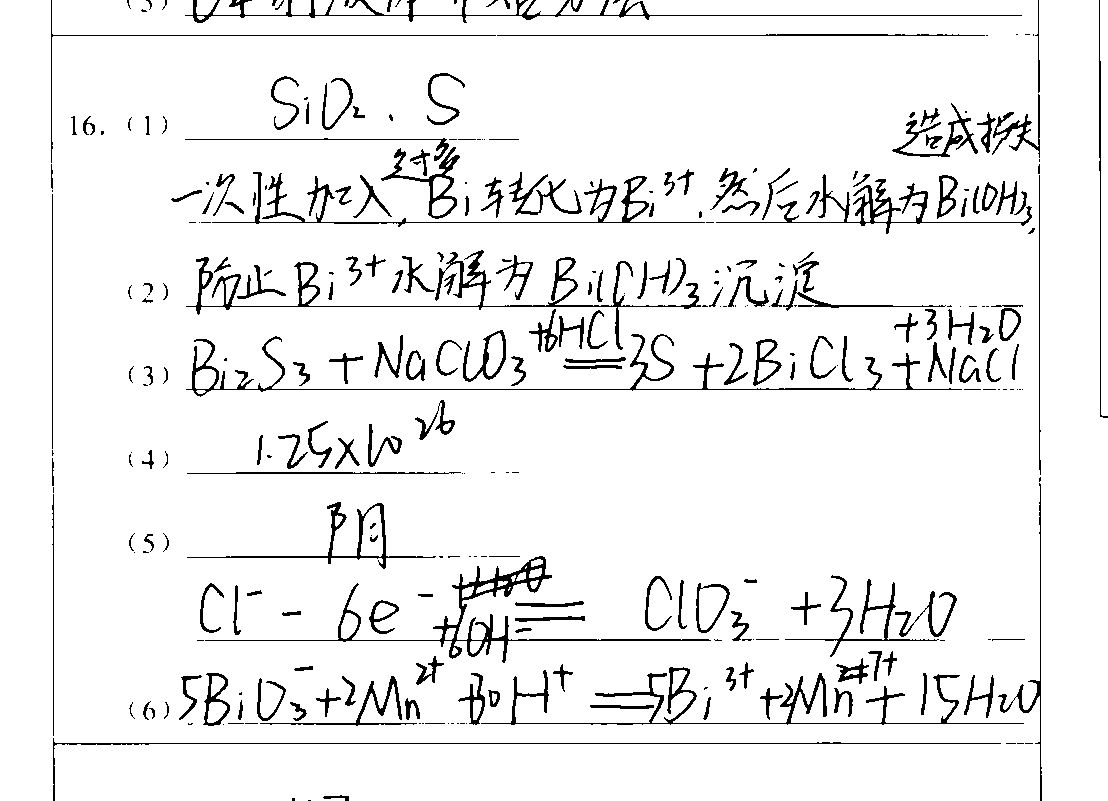 (3)
16. (1) SiO₂、S
造成损失
过多
一次性加入,Bi转化为Bi³⁺,然后水解为Bi(OH)₃,
(2) 防止Bi³⁺水解为Bi(OH)₃沉淀
(3) Bi₂S₃ + NaClO₃ +6HCl = 3S + 2BiCl₃ + NaCl +3H₂O
(4) 1.25×10²⁶
(5) 阴
Cl⁻ - 6e⁻ +6OH⁻ = ClO₃⁻ + 3H₂O
(6) 5BiO₃⁻ + 2Mn²⁺ + 30H⁺ = 5Bi³⁺ + 2Mn⁷⁺ + 15H₂O